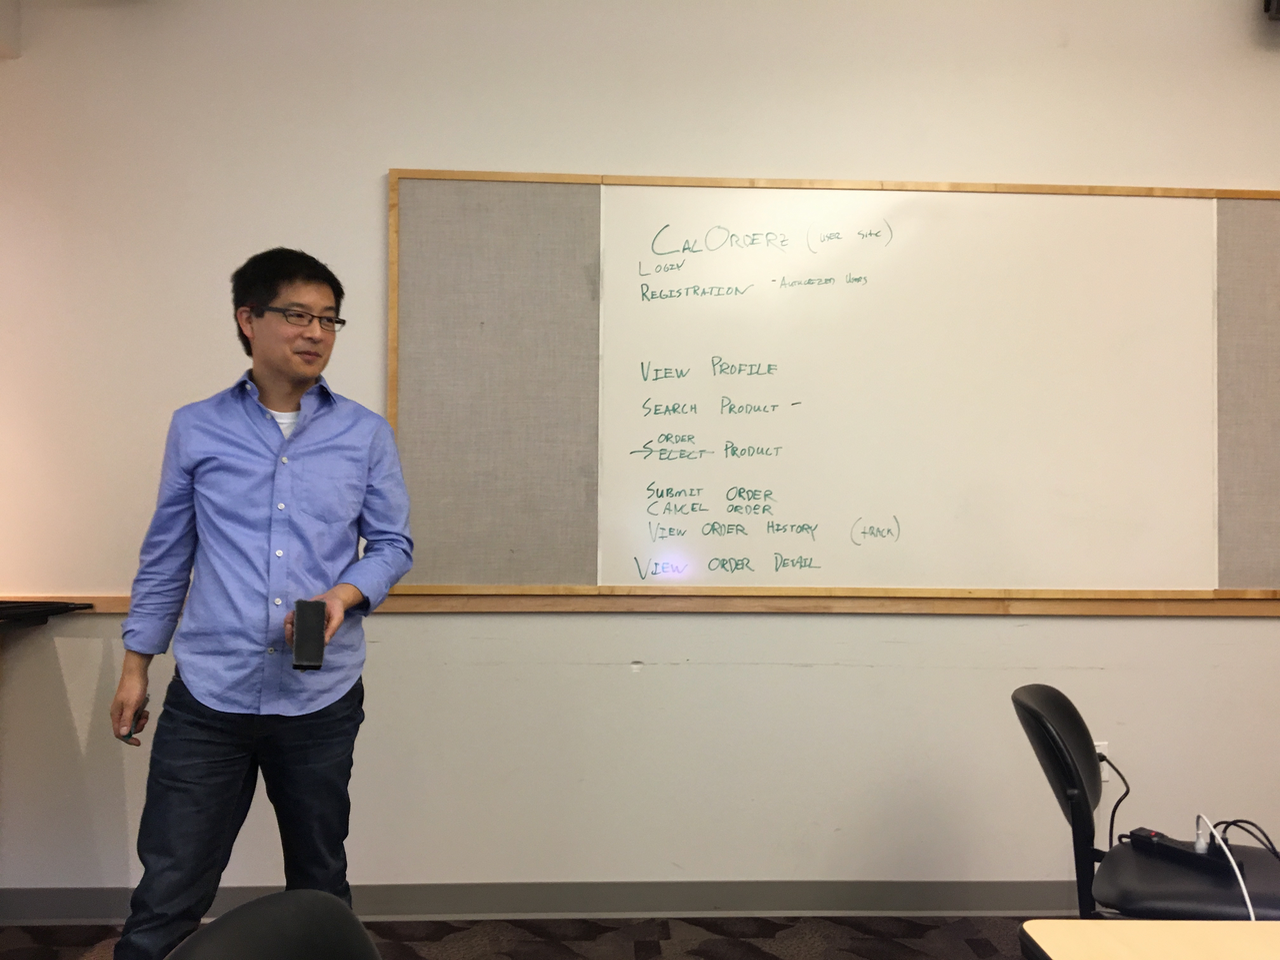 CALORDERZ (USER SITE)
LOGIN
REGISTRATION - AUTHORIZED USERS
VIEW PROFILE
SEARCH PRODUCT -
ORDER
SELECT PRODUCT
SUBMIT ORDER
CANCEL ORDER
VIEW ORDER HISTORY (TRACK)
VIEW ORDER DETAIL